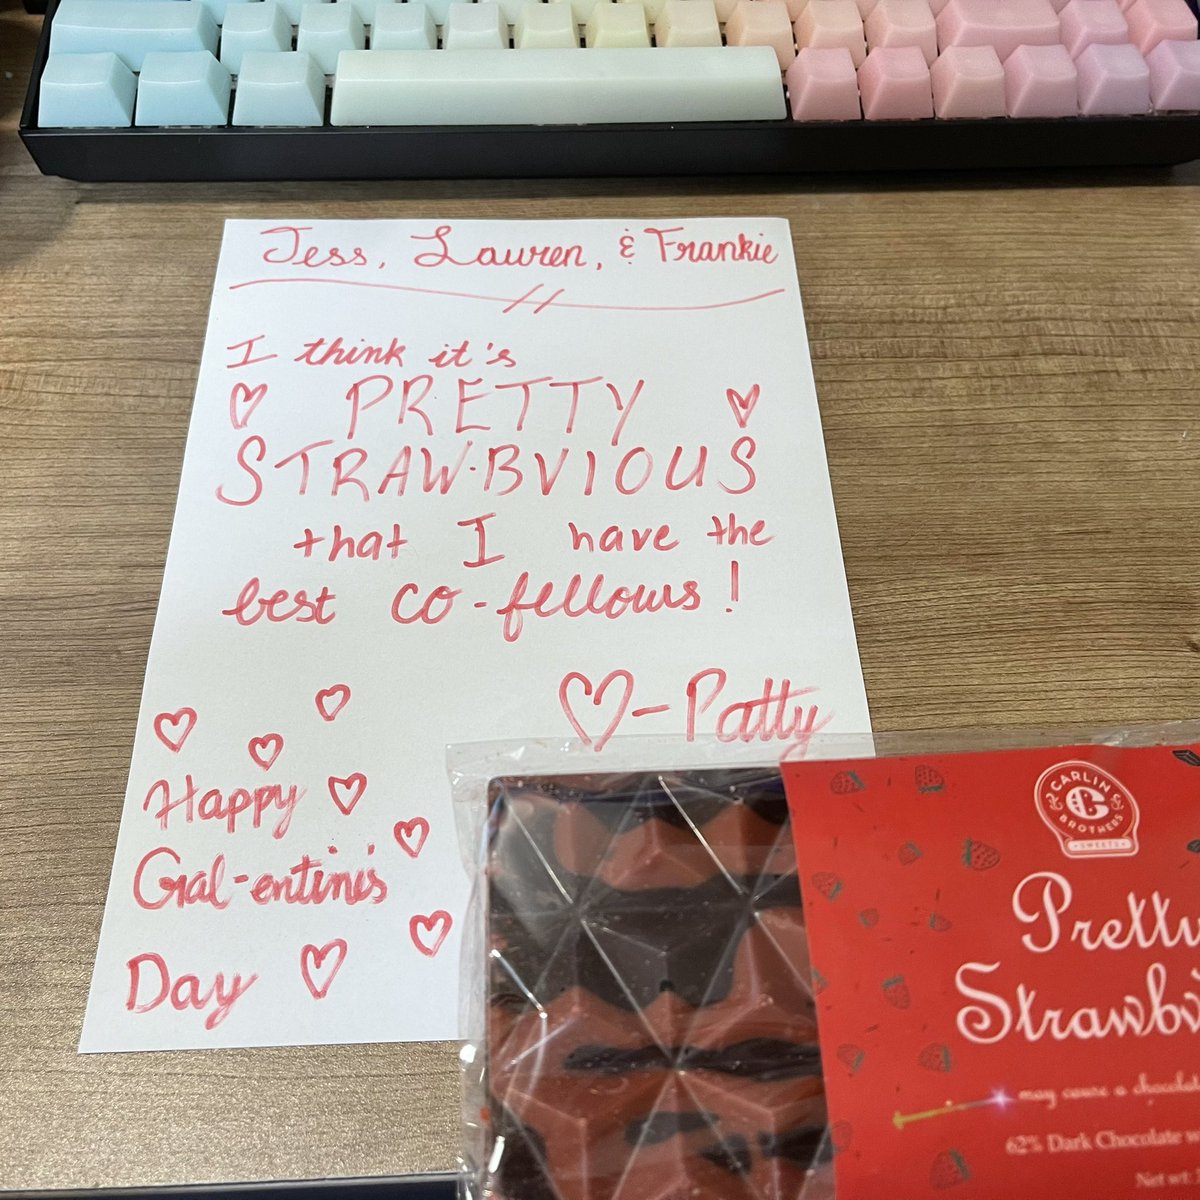 Jess, Lauren, & Frankie
I think it's
PRETTY
STRAW·BVIOUS
that I have the
best co-fellows!
-Patty
Happy
Gal-entine's
Day
CARLIN
C
BROTHERS
SWEETS
Pretty
may cause a
62% Dark Chocolate
Net